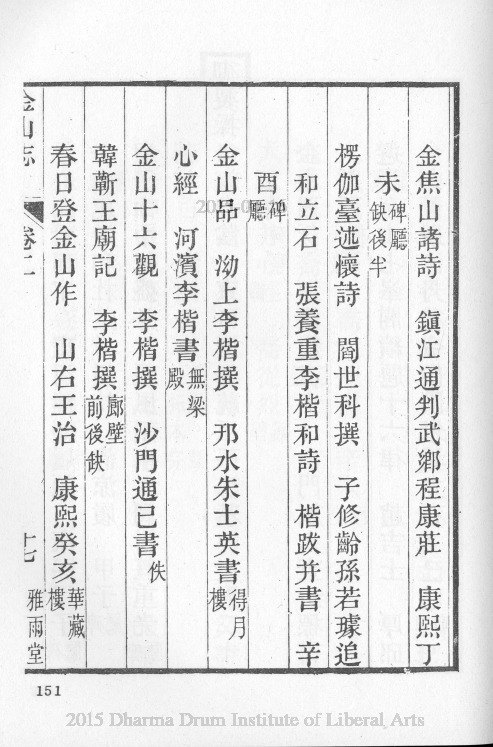 金焦山諸詩　鎮江通判武鄉程康莊　康熙丁
未碑廳缺後半
楞伽臺述懷詩　閻世科撰　子修齡孫若璩追
和立石　張養重李楷和詩　楷跋并書　辛
酉碑廳
金山品　泐上李楷撰　邗水朱士英書得月樓
心經　河濱李楷書無梁殿
金山十六觀　李楷撰　沙門通已書佚
韓蘄王廟記　李楷撰廊壁前後缺
春日登金山作　山右王治　康熙癸亥華藏樓
金山志　卷二　十七　雅雨堂
2015-03-10
151
2015 Dharma Drum Institute of Liberal Arts